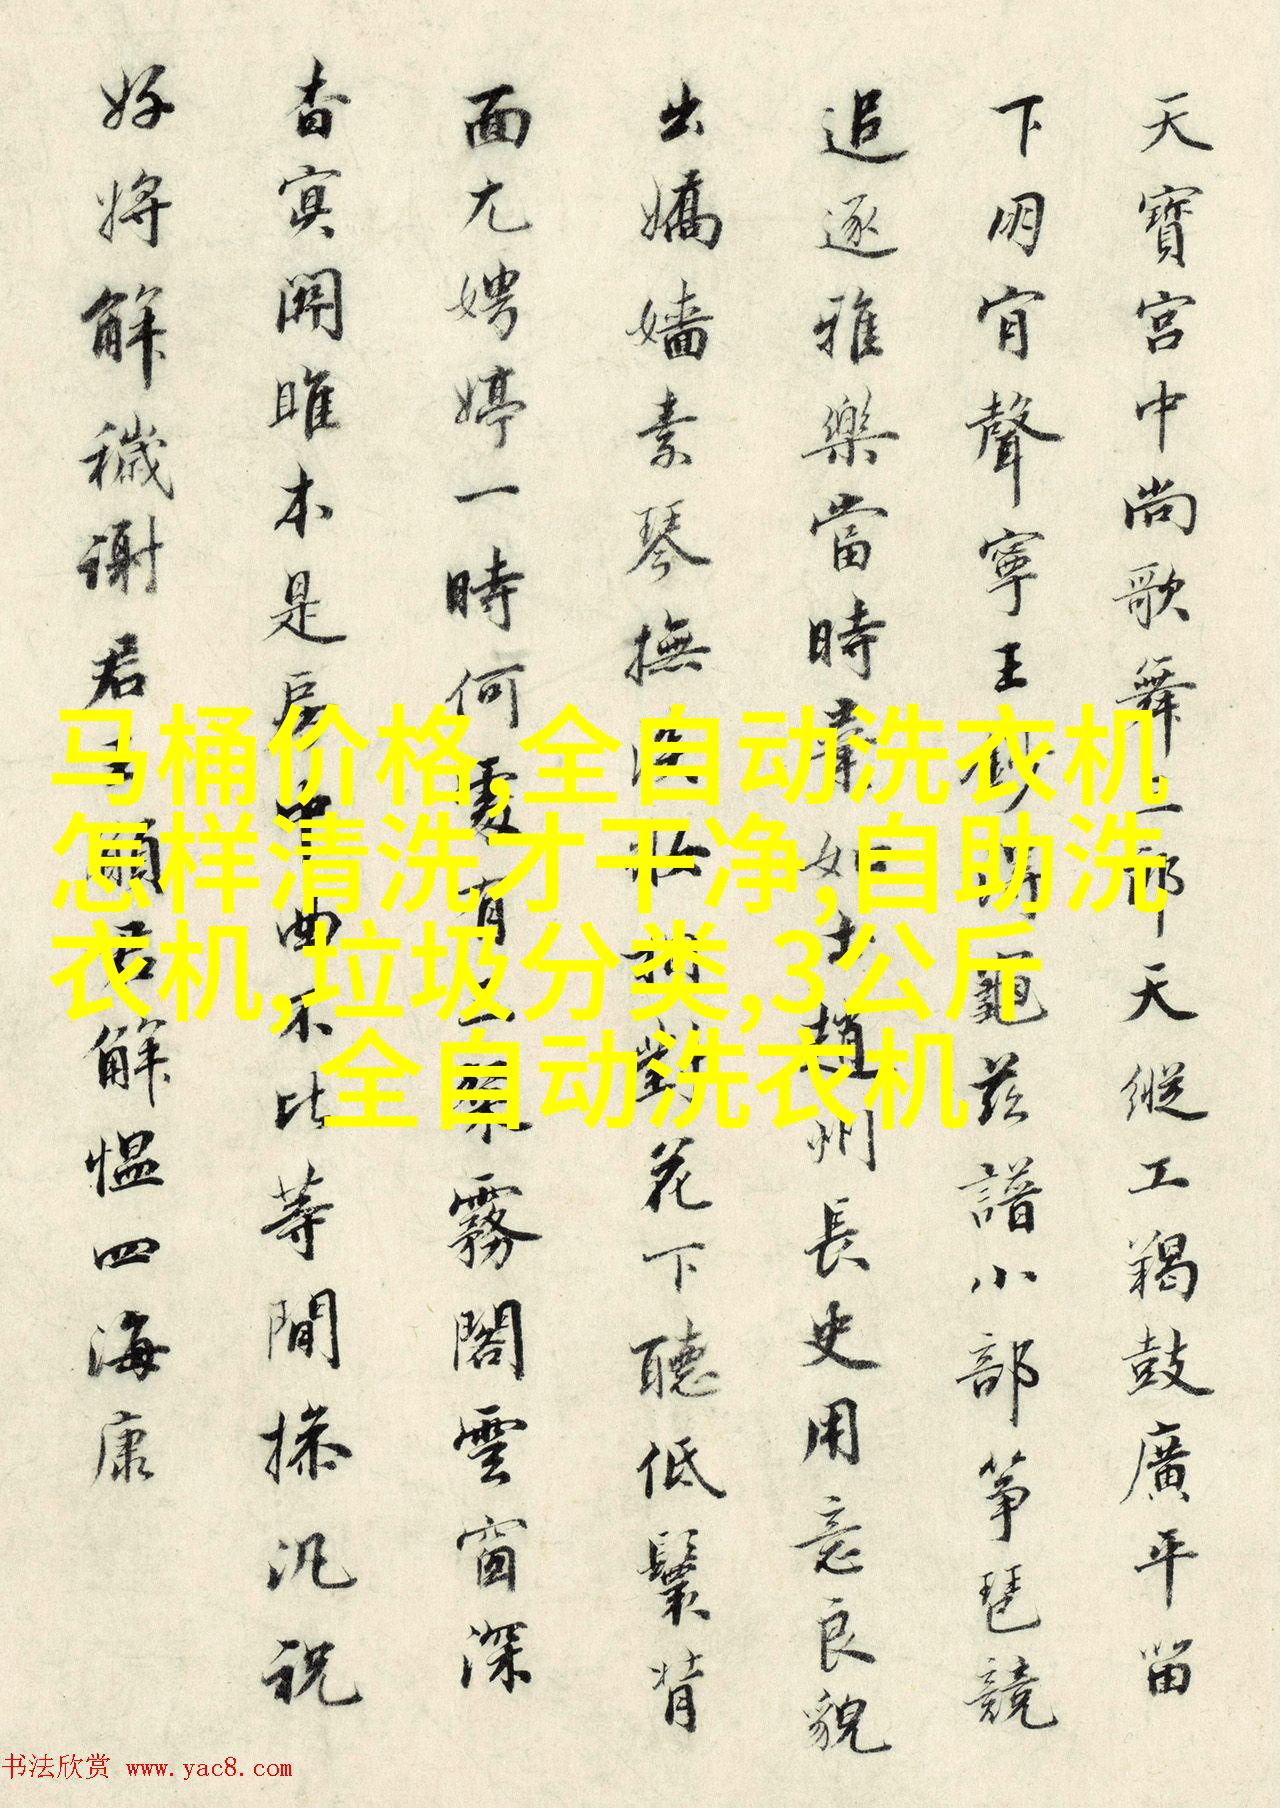 天寶宮中尚歌舞二部天縱工羯鼓廣平笛
下明宵聲寧王龜茲譜小部箏琵競
追逐雅樂當時如趙州長史用意良貌
出嬌嬙素琴撫對花下聽低鬟背
面尤娉婷一時何處有霧閣雲窗深
杳冥關雎本是房中曲不比等閒操汎祝
好將解穢謝君君解慍四海康
马桶价格,全自动洗衣机
怎样清洗才干净,自助洗
衣机,垃圾分类,3公斤
全自动洗衣机
书法欣赏 www.yac8.com